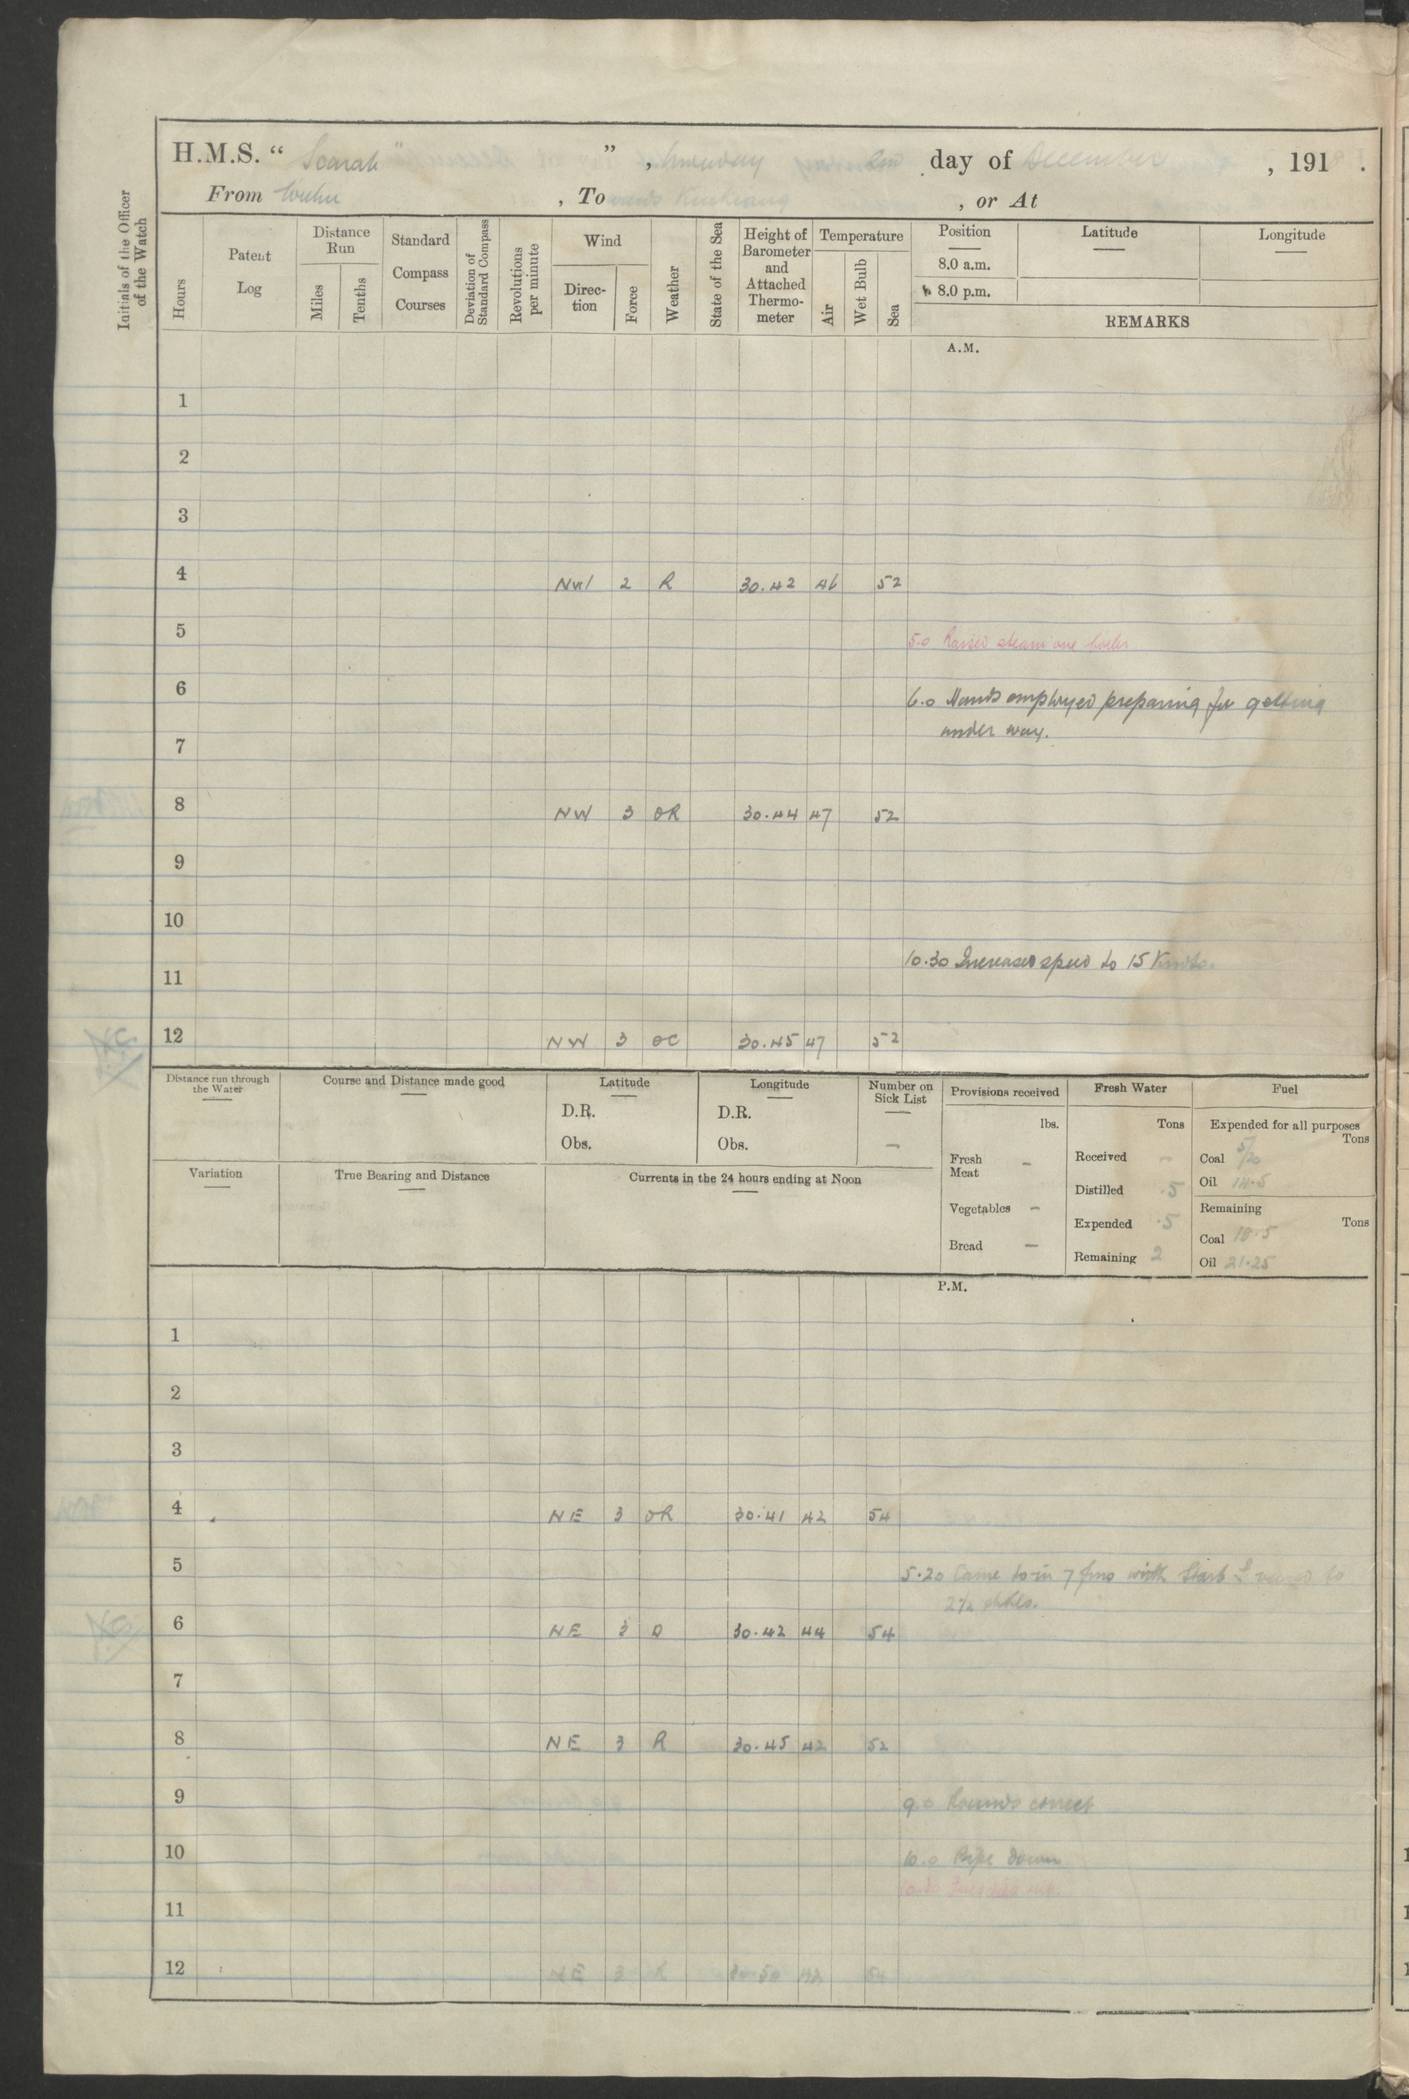 H.M.S. “ Scarab ” , day of December , 191 .
From Wuhu , To wards Kiukiang , or At
Initials of the Officer of the Watch
Hours
Patent Log
Distance Run
Miles
Tenths
Standard Compass Courses
Deviation of Standard Compass
Revolutions per minute
Wind
Direc-tion
Force
Weather
State of the Sea
Height of Barometer and Attached Thermo-meter
Temperature
Air
Wet Bulb
Sea
Position
8.0 a.m.
8.0 p.m.
Latitude
Longitude
REMARKS
A.M.
1
2
3
4 NW 2 R 30.42 46 52
5 5.0 Raised steam one boiler
6 6.0 Hands employed preparing for getting
under way.
7
8 NW 3 OR 30.44 47 52
9
10
10.30 Increased speed to 15 Knots.
11
12 NW 3 OC 30.45 47 52
Distance run through the Water
Course and Distance made good
Latitude
D.R.
Obs.
Longitude
D.R.
Obs.
Number on Sick List
—
Variation
True Bearing and Distance
Currents in the 24 hours ending at Noon
Provisions received
lbs.
Fresh Meat –
Vegetables –
Bread –
Fresh Water
Tons
Received –
Distilled .5
Expended .5
Remaining 2
Fuel
Expended for all purposes
Tons
Coal 5/20
Oil 14.5
Remaining
Tons
Coal 18.5
Oil 21.25
P.M.
1
2
3
4 NE 3 OR 30.41 42 54
5 5.20 Came to in 7 fms with Starb veered to
2½ shkls.
6 NE 3 O 30.42 44 54
7
8 NE 3 R 30.45 42 52
9 9.0 Rounds correct
10 10.0 Pipe down
11
12 NE 3 R 30.50 42 54